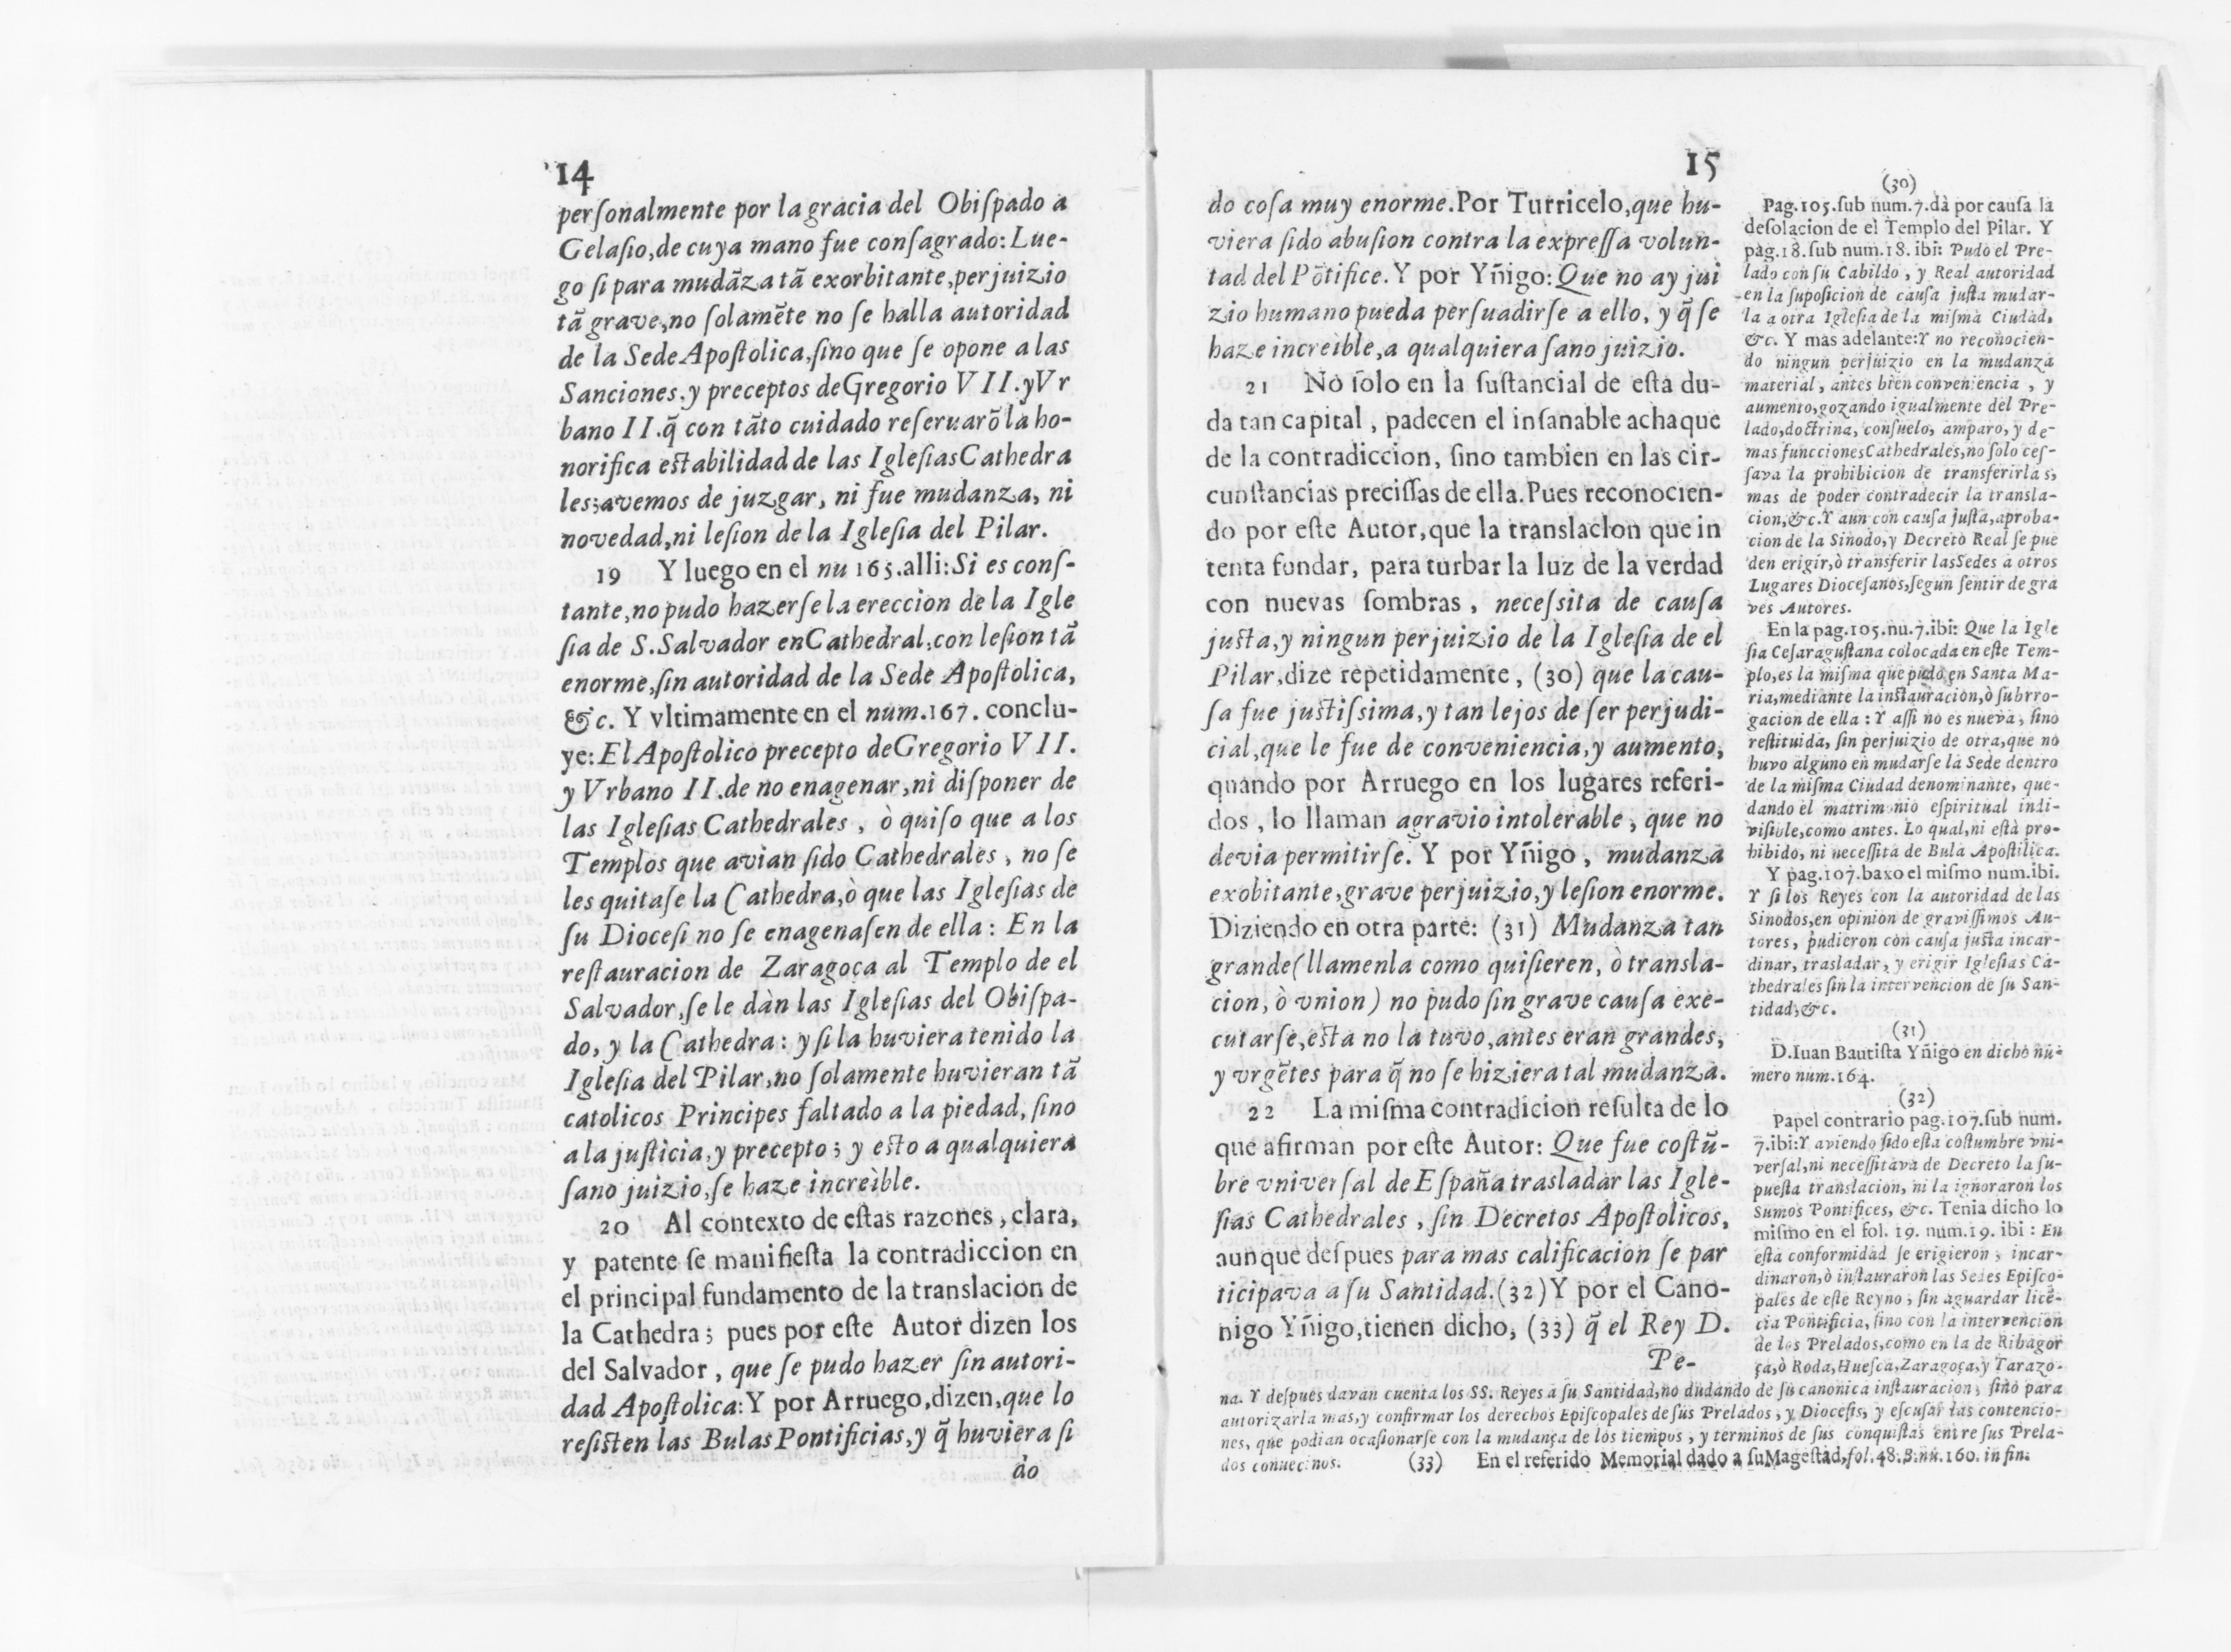 14
perſonalmente por la gracia del Obiſpado a
Gelaſio,de cuya mano fue conſagrado: Lue-
go ſi para mudãza tã exorbitante,perjuizio
tã grave,no ſolamẽte no ſe halla autoridad
de la Sede Apoſtolica,ſino que ſe opone a las
Sanciones.y preceptos deGregorio VII.yVr
bano II.q̃ con tãto cuidado reſeruarõ la ho-
norifica eſtabilidad de las IgleſiasCathedra
les;avemos de juzgar, ni fue mudanza, ni
novedad,ni leſion de la Igleſia del Pilar.
19 Y luego en el nu 165.alli:Si es conſ-
tante,no pudo hazerſe la ereccion de la Igle
ſia de S.Salvador enCathedral,con leſion tã
enorme,ſin autoridad de la Sede Apoſtolica,
&c. Y vltimamente en el num.167. conclu-
ye: El Apoſtolico precepto deGregorio VII.
y Vrbano II.de no enagenar,ni diſponer de
las Igleſias Cathedrales, ò quiſo que a los
Templos que avian ſido Cathedrales, no ſe
les quitaſe la Cathedra,ò que las Igleſias de
ſu Dioceſi no ſe enagenaſen de ella: En la
reſtauracion de Zaragoça al Templo de el
Salvador,ſe le dàn las Igleſias del Obiſpa-
do, y la Cathedra: y ſi la huviera tenido la
Igleſia del Pilar,no ſolamente huvieran tã
catolicos Principes faltado a la piedad, ſino
a la juſticia,y precepto; y eſto a qualquiera
ſano juizio,ſe haze increìble.
20 Al contexto de eſtas razones, clara,
y patente ſe manifieſta la contradiccion en
el principal fundamento de la translacion de
la Cathedra; pues por eſte Autor dizen los
del Salvador, que ſe pudo hazer ſin autori-
dad Apoſtolica: Y por Arruego,dizen,que lo
reſiſten las Bulas Pontificias,y q̃ huviera ſi
do
15
do coſa muy enorme.Por Turricelo,que hu-
viera ſido abuſion contra la expreſſa volun-
tad del Põtifice. Y por Yñigo: Que no ay jui
zio humano pueda perſuadirſe a ello, y q̃ ſe
haze increìble,a qualquiera ſano juizio.
21 No ſolo en la ſuſtancial de eſta du-
da tan capital, padecen el inſanable achaque
de la contradiccion, ſino tambien en las cir-
cunſtancias preciſſas de ella. Pues reconocien-
do por eſte Autor,que la translacion que in
tenta fundar, para turbar la luz de la verdad
con nuevas ſombras, neceſsita de cauſa
juſta,y ningun perjuizio de la Igleſia de el
Pilar,dize repetidamente, (30) que la cau-
ſa fue juſtiſsima,y tan lejos de ſer perjudi-
cial,que le fue de conveniencia,y aumento,
quando por Arruego en los lugares referi-
dos, lo llaman agravio intolerable, que no
devia permitirſe. Y por Yñigo, mudanza
exobitante,grave perjuizio,y leſion enorme.
Diziendo en otra parte: (31) Mudanza tan
grande(llamenla como quiſieren, ò transla-
cion, ò vnion) no pudo ſin grave cauſa exe-
cutarſe,eſta no la tuvo,antes eran grandes,
y vrgẽtes para q̃ no ſe hiziera tal mudanza.
22 La miſma contradicion reſulta de lo
que afirman por eſte Autor: Que fue coſtũ-
bre vniverſal de Eſpaña trasladar las Igle-
ſias Cathedrales, ſin Decretos Apoſtolicos,
aunque deſpues para mas calificacion ſe par
ticipava a ſu Santidad.(32) Y por el Cano-
nigo Yñigo,tienen dicho, (33) q̃ el Rey D.
Pe-
(30)
Pag.105.ſub num.7.dà por cauſa la
deſolacion de el Templo del Pilar. Y
pag.18.ſub num.18. ibi: Pudo el Pre-
lado con ſu Cabildo, y Real autoridad
en la ſupoſicion de cauſa juſta mudar-
la a otra Igleſia de la miſma Ciudad,
&c. Y mas adelante:Y no reconocien-
do ningun perjuizio en la mudanza
material, antes bien conveniencia, y
aumento,gozando igualmente del Pre-
lado,doctrina, conſuelo, amparo, y de-
mas funccionesCathedrales,no ſolo ceſ-
ſava la prohibicion de transferirlas,
mas de poder contradecir la transla-
cion,&c.Y aun con cauſa juſta,aproba-
cion de la Sinodo,y Decreto Real ſe pue
den erigir,ò transferir lasSedes a otros
Lugares Dioceſanos,ſegun ſentir de gra
ves Autores.
En la pag.105.nu.7.ibi: Que la Igle
ſia Ceſaraguſtana colocada en eſte Tem-
plo,es la miſma que pudo en Santa Ma-
ria,mediante la inſtauracion,ò ſubrro-
gacion de ella: Y aſſi no es nueva, ſino
reſtituida, ſin perjuizio de otra,que no
huvo alguno en mudarſe la Sede dentro
de la miſma Ciudad denominante, que-
dando el matrimonio eſpiritual indi-
viſible,como antes. Lo qual,ni eſtà pro-
hibido, ni neceſſita de Bula Apoſtilica.
Y pag.107.baxo el miſmo num.ibi.
Y ſi los Reyes con la autoridad de las
Sinodos,en opinion de graviſſimos Au-
tores, pudieron con cauſa juſta incar-
dinar, trasladar, y erigir Igleſias Ca-
thedrales ſin la intervencion de ſu San-
tidad,&c.
(31)
D.Iuan Bautiſta Yñigo en dicho nu-
mero num.164.
(32)
Papel contrario pag.107.ſub num.
7.ibi:Y aviendo ſido eſta coſtumbre vni-
verſal,ni neceſſitava de Decreto la ſu-
pueſta translacion, ni la ignoraron los
Sumos Pontifices, &c. Tenia dicho lo
miſmo en el fol. 19. num.19. ibi: En
eſta conformidad ſe erigieron, incar-
dinaron,ò inſtauraron las Sedes Epiſco-
pales de eſte Reyno, ſin aguardar licẽ-
cia Pontificia, ſino con la intervencion
de los Prelados,como en la de Ribagor
ça,ò Roda,Hueſca,Zaragoça,y Tarazo-
na. Y deſpues davan cuenta los SS. Reyes a ſu Santidad,no dudando de ſu canonica inſtauracion, ſino para
autorizarla mas,y confirmar los derechos Epiſcopales de ſus Prelados, y Dioceſis, y eſcuſar las contencio-
nes, que podian ocaſionarſe con la mudança de los tiempos, y terminos de ſus conquiſtas entre ſus Prela-
dos conuecinos. (33) En el referido Memorial dado a ſuMageſtad,fol.48.B.nu.160. in fin.